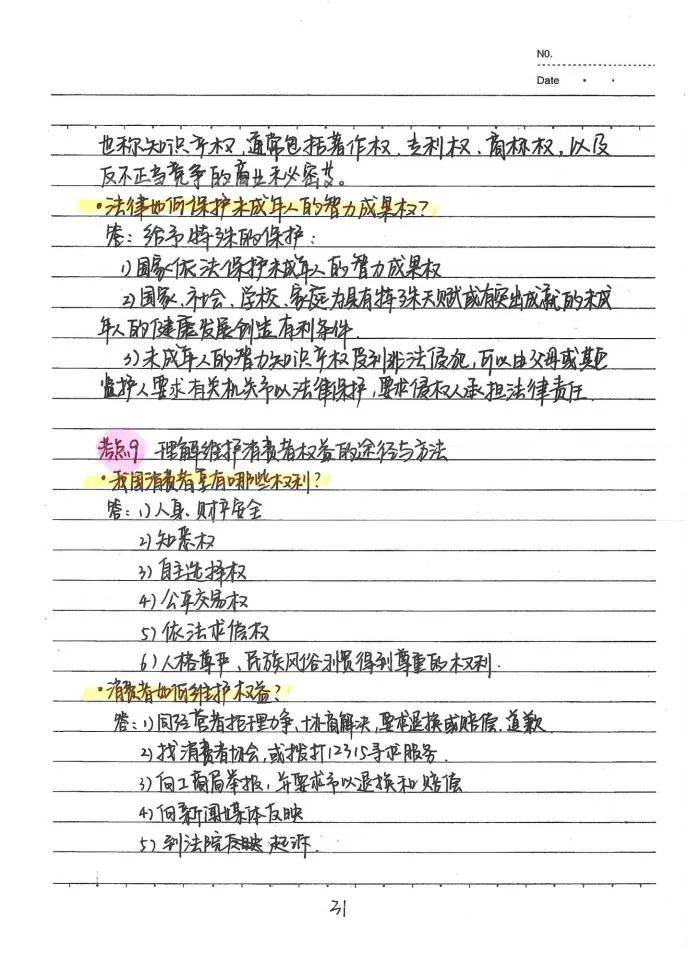 NO.
Date
也称知识产权,通常包括著作权、专利权、商标权,以及
反不正当竞争的商业秘密等。
·法律如何保护未成年人的智力成果权?
答:给予特殊的保护:
1)国家依法保护未成年人的智力成果权
2)国家、社会、学校、家庭为具有特殊天赋或有突出成就的未成
年人的健康发展创造有利条件.
3)未成年人的智力知识产权受到非法侵犯,可以由父母或其它
监护人要求有关机关予以法律保护,要求侵权人承担法律责任.
考点9 理解维护消费者权益的途径与方法
·我国消费者享有哪些权利?
答:1)人身、财产安全
2)知悉权
3)自主选择权
4)公平交易权
5)依法求偿权
6)人格尊严、民族风俗习惯得到尊重的权利.
·消费者如何维护权益?
答:1)同经营者据理力争、协商解决,要求退换或赔偿、道歉.
2)找消费者协会,或拨打12315寻求服务.
3)向工商局举报,并要求予以退换和赔偿
4)向新闻媒体反映
5)到法院反映起诉.
31